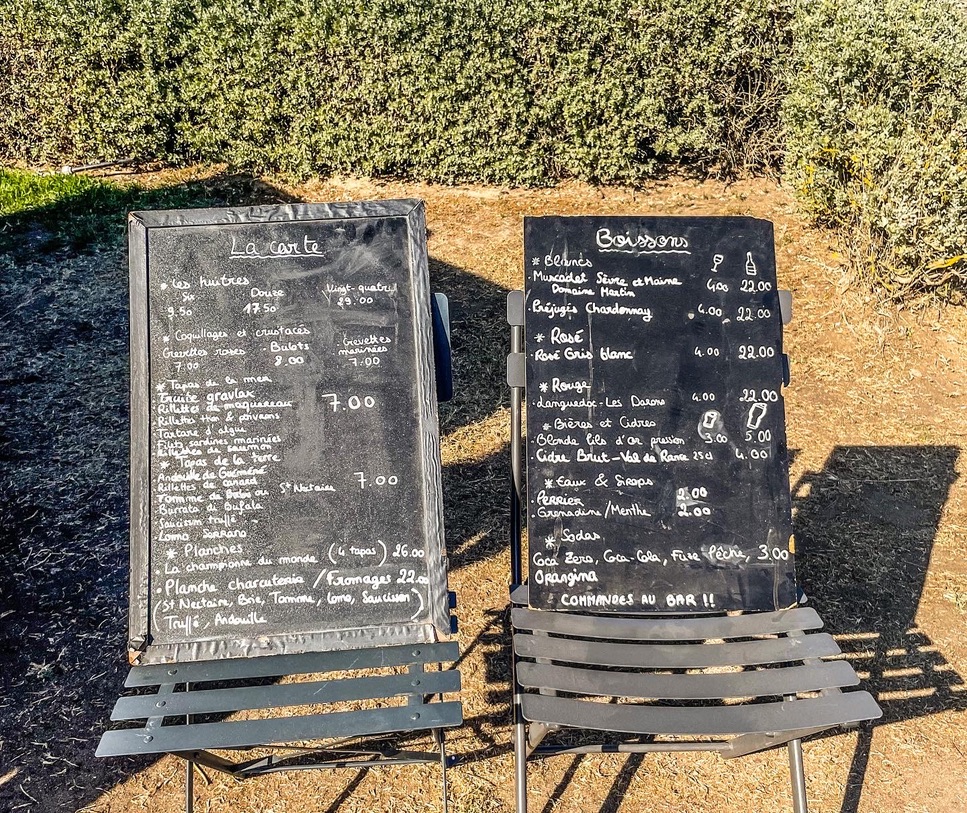 La carte
• Les huîtres
Six Douze Vingt-quatre
9.50 17.50 29.00
* Coquillages et crustacés
Crevettes roses Bulots Crevettes marinées
7.00 8.00 7.00
* Tapas de la mer
Truite gravlax
Rillettes de maquereau 7.00
Rillettes thon & poivrons
Tartare d'algue
Filets sardines marinées
Rillettes de saumon
* Tapas de la terre
Andouille de Guéméné
Rillettes de canard 7.00
Tomme de Brebis ou St Nectaire
Burrata di Bufala
Saucisson truffé
Lomo Serrano
* Planches
• La championne du monde (4 tapas) 26.00
• Planche charcuterie / Fromages 22.00
(St Nectaire, Brie, Tomme, Lomo, Saucisson)
Truffé, Andouille
Boissons
* Blancs
• Muscadet Sèvre et Maine 4.00 22.00
Domaine Martin
• Préjugés Chardonnay 4.00 22.00
* Rosé
• Rosé Gris blanc 4.00 22.00
* Rouge
• Languedoc - Les Darons 4.00 22.00
* Bières et Cidres
• Blonde fils d'or pression 3.00 5.00
• Cidre Brut - Val de Rance 25cl 4.00
* Eaux & Sirops
• PERRIER 2.00
• Grenadine / Menthe 2.00
* Sodas
Coca Zero, Coca-Cola, Fuze Pêche, 3.00
Orangina
COMMANDES AU BAR !!